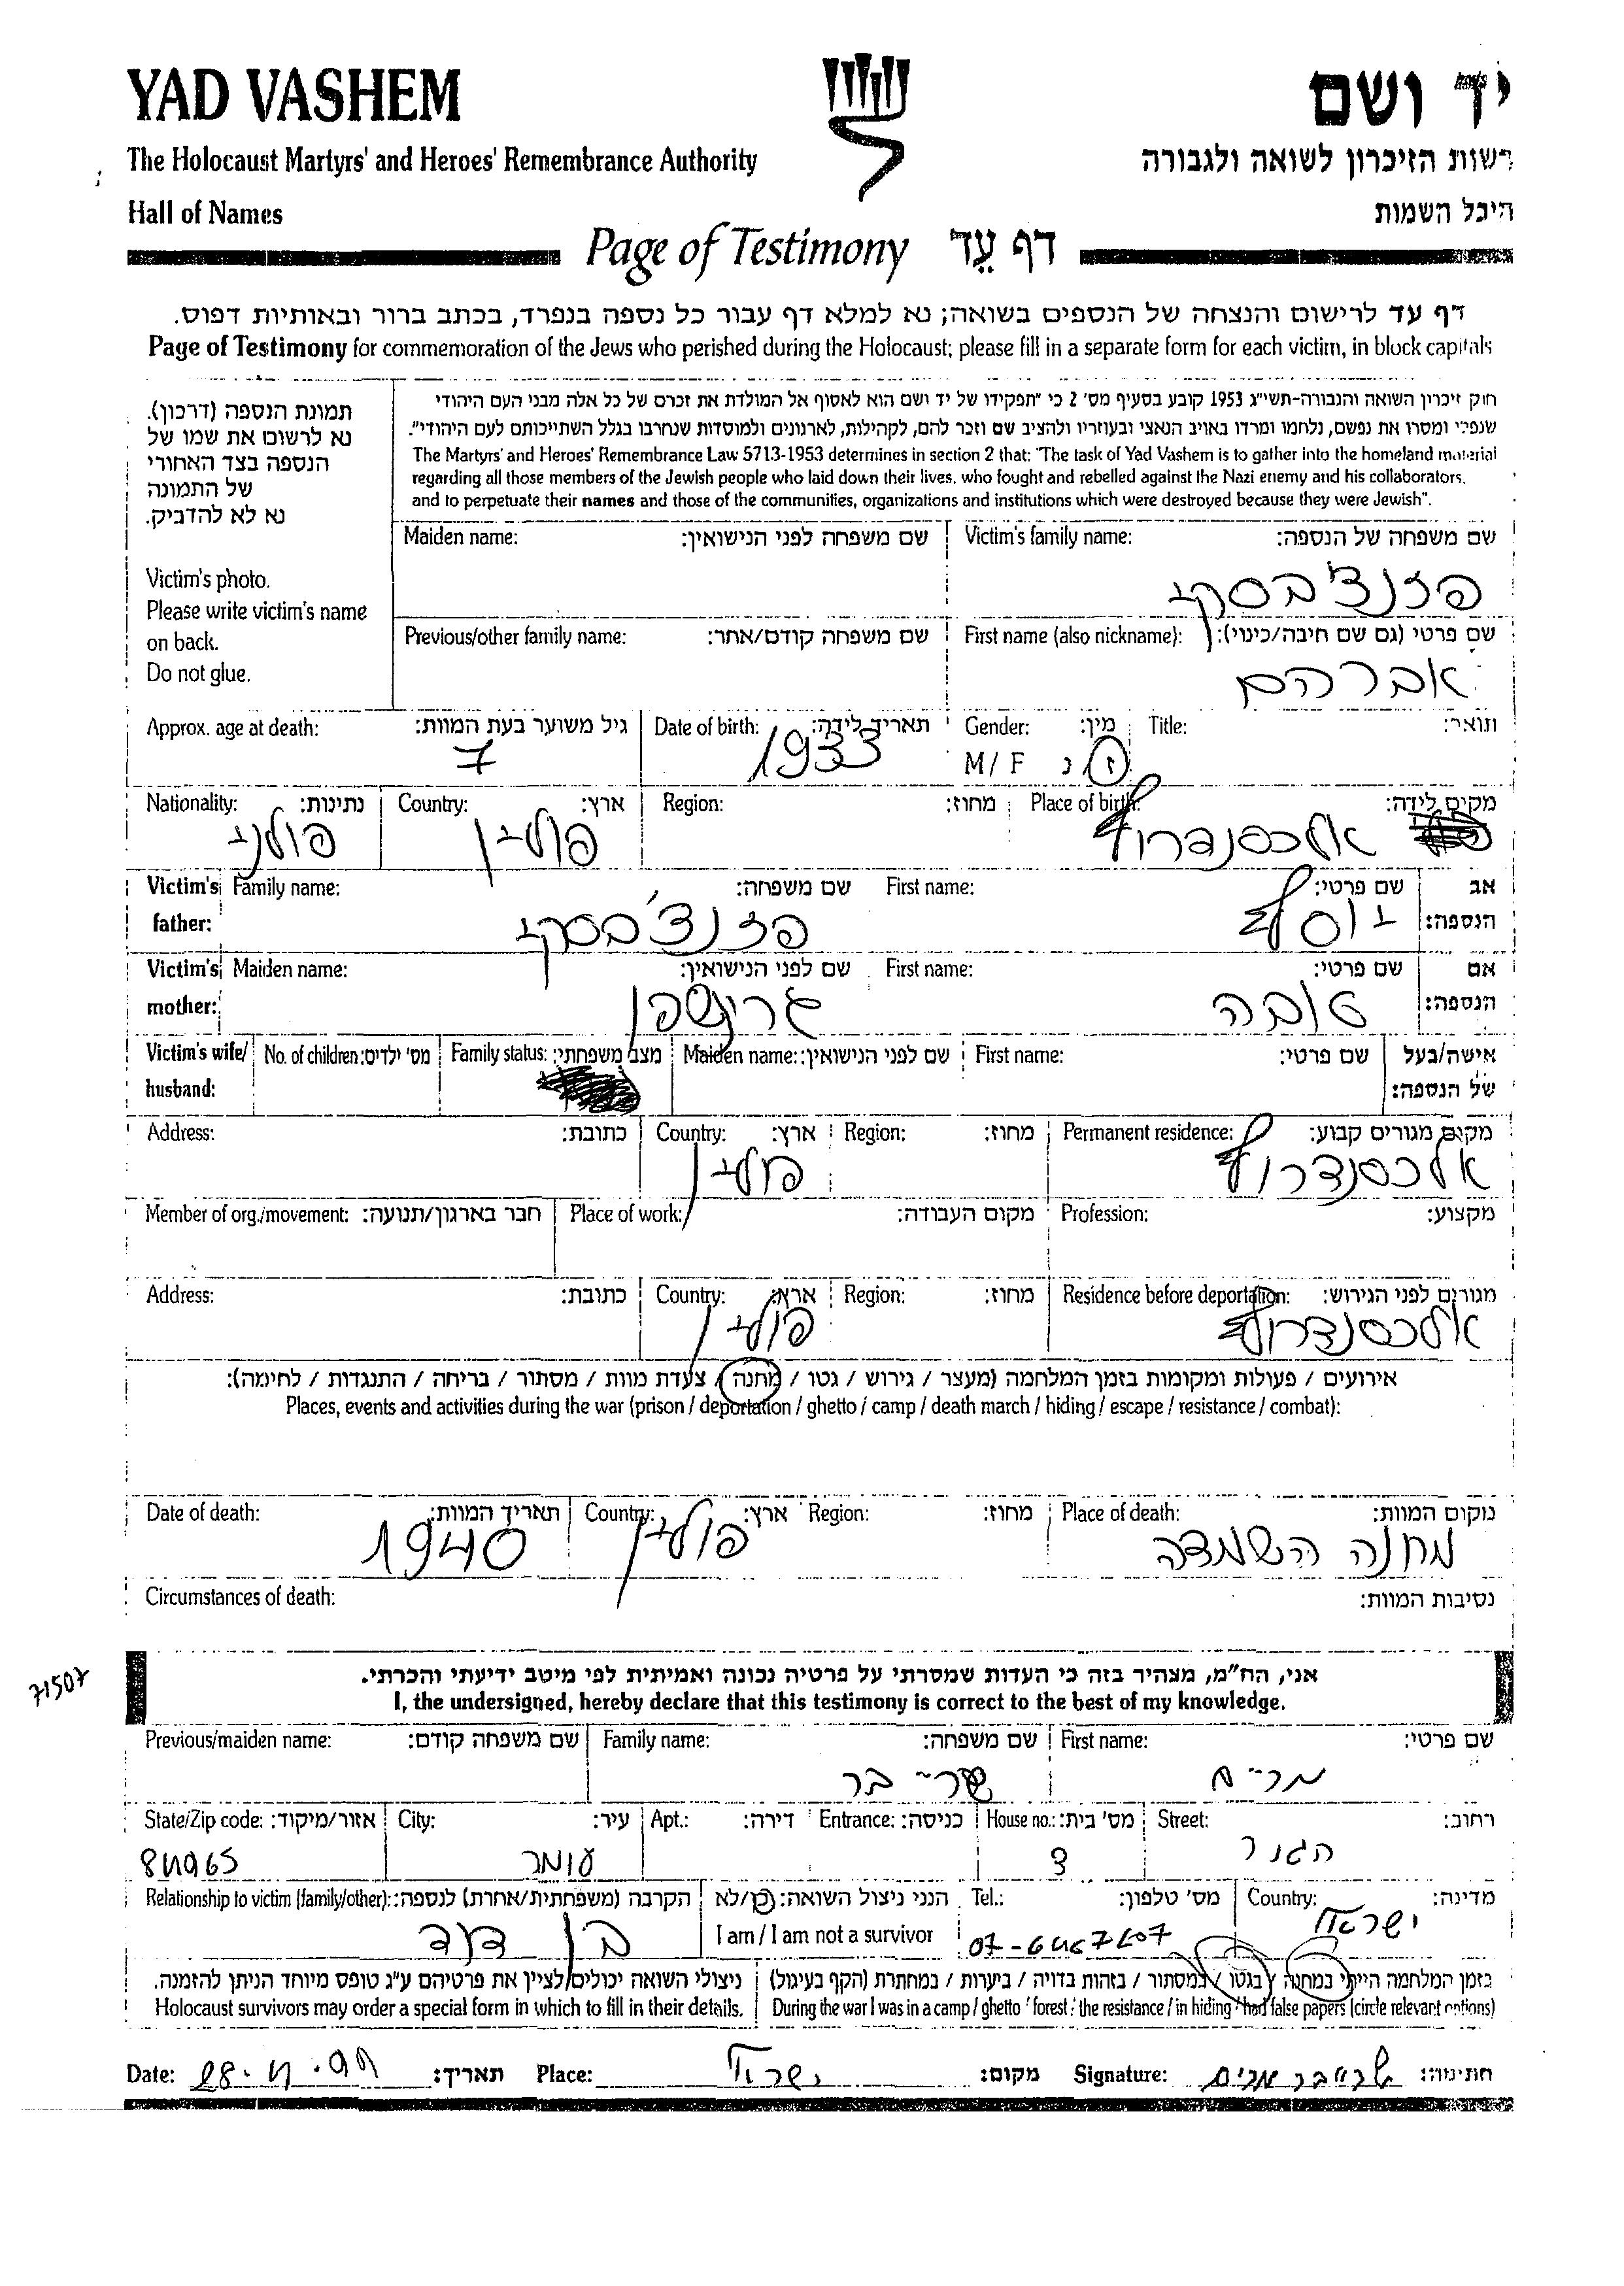 YAD VASHEM
יד ושם
The Holocaust Martyrs' and Heroes' Remembrance Authority
רשות הזיכרון לשואה ולגבורה
Hall of Names
היכל השמות
Page of Testimony דף עֵד
דף עד לרישום והנצחה של הנספים בשואה; נא למלא דף עבור כל נספה בנפרד, בכתב ברור ובאותיות דפוס.
Page of Testimony for commemoration of the Jews who perished during the Holocaust; please fill in a separate form for each victim, in block capitals
תמונת הנספה (דרכון).
נא לרשום את שמו של
הנספה בצד האחורי
של התמונה
נא לא להדביק.
Victim's photo.
Please write victim's name
on back.
Do not glue.
חוק זיכרון השואה והגבורה-תשי"ג 1953 קובע בסעיף מס' 2 כי "תפקידו של יד ושם הוא לאסוף אל המולדת את זכרם של כל אלה מבני העם היהודי
שנפלו ומסרו את נפשם, נלחמו ומרדו באויב הנאצי ובעוזריו ולהציב שם וזכר להם, לקהילות, לארגונים ולמוסדות שנחרבו בגלל השתייכותם לעם היהודי".
The Martyrs' and Heroes' Remembrance Law 5713-1953 determines in section 2 that: "The task of Yad Vashem is to gather into the homeland material
regarding all those members of the Jewish people who laid down their lives, who fought and rebelled against the Nazi enemy and his collaborators,
and to perpetuate their names and those of the communities, organizations and institutions which were destroyed because they were Jewish".
Maiden name: שם משפחה לפני הנישואין: Victim's family name: שם משפחה של הנספה:
פזנצ'בסקי
Previous/other family name: שם משפחה קודם/אחר: First name (also nickname): שם פרטי (גם שם חיבה/כינוי):
אברהם
Approx. age at death: גיל משוער בעת המוות: Date of birth: תאריך לידה: Gender: מין: Title: תואר:
7 1933 M / F ז נ
Nationality: נתינות: Country: ארץ: Region: מחוז: Place of birth: מקום לידה:
פולני פולין אלכסנדרוף
Victim's father: Family name: שם משפחה: First name: שם פרטי: אב הנספה:
פזנצ'בסקי יוסף
Victim's mother: Maiden name: שם לפני הנישואין: First name: שם פרטי: אם הנספה:
גרינשפן
Victim's wife/ husband: No. of children: מס' ילדים: Family status: מצב משפחתי: Maiden name: שם לפני הנישואין: First name: שם פרטי: אישה/בעל של הנספה:
Address: כתובת: Country: ארץ: Region: מחוז: Permanent residence: מקום מגורים קבוע:
פולין אלכסנדרוף
Member of org./movement: חבר בארגון/תנועה: Place of work: מקום העבודה: Profession: מקצוע:
Address: כתובת: Country: ארץ: Region: מחוז: Residence before deportation: מגורים לפני הגירוש:
פולין אלכסנדרוף
אירועים / פעולות ומקומות בזמן המלחמה (מעצר / גירוש / גטו / מחנה / צעדת מוות / מסתור / בריחה / התנגדות / לחימה):
Places, events and activities during the war (prison / deportation / ghetto / camp / death march / hiding / escape / resistance / combat):
Date of death: תאריך המוות: Country: ארץ: Region: מחוז: Place of death: מקום המוות:
1940 פולין מחנה השמדה
Circumstances of death: נסיבות המוות:
71507
אני, הח"מ, מצהיר בזה כי העדות שמסרתי על פרטיה נכונה ואמיתית לפי מיטב ידיעתי והכרתי.
I, the undersigned, hereby declare that this testimony is correct to the best of my knowledge.
Previous/maiden name: שם משפחה קודם: Family name: שם משפחה: First name: שם פרטי:
שרייבר מרים
State/Zip code: אזור/מיקוד: City: עיר: Apt.: דירה: Entrance: כניסה: House no.: מס' בית: Street: רחוב:
84965 עומר 3
Relationship to victim (family/other): הקרבה (משפחתית/אחרת) לנספה: הנני ניצול השואה: כן/לא Tel.: מס' טלפון: Country: מדינה:
בן דוד I am / I am not a survivor ישראל
ניצולי השואה יכולים לציין את פרטיהם ע"ג טופס מיוחד הניתן להזמנה. בזמן המלחמה הייתי במחנה / בגטו / במסתור / בזהות בדויה / ביערות / במחתרת (הקף בעיגול)
Holocaust survivors may order a special form in which to fill in their details. During the war I was in a camp / ghetto / forest / the resistance / in hiding / had false papers (circle relevant options)
Date: תאריך: Place: ישראל מקום: Signature: שרייבר מרים חתימה: